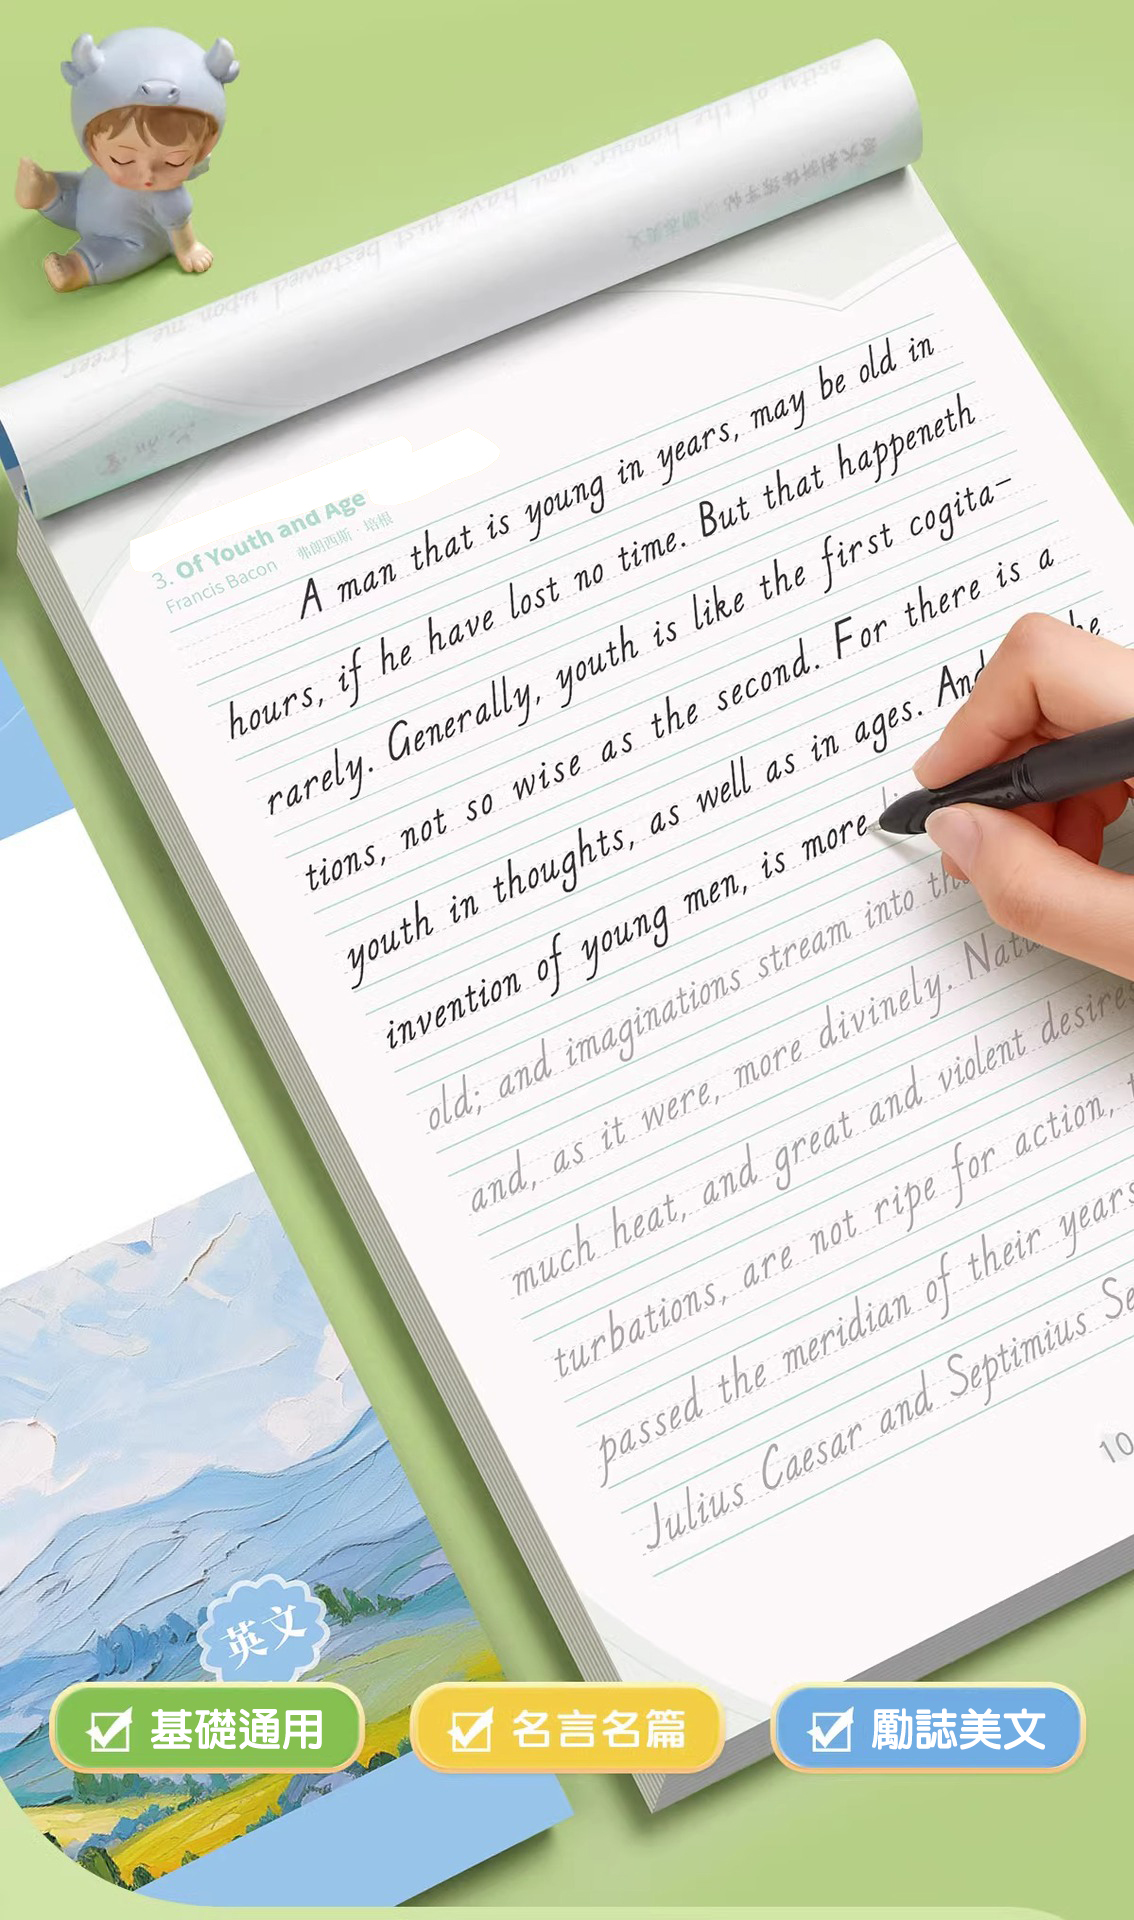 3. Of Youth and Age
Francis Bacon 弗朗西斯·培根
A man that is young in years, may be old in
hours, if he have lost no time. But that happeneth
rarely. Generally, youth is like the first cogita-
tions, not so wise as the second. For there is a
youth in thoughts, as well as in ages. And he
invention of young men, is more
old; and imaginations stream into
and, as it were, more divinely.
much heat, and great and violent desires
turbations, are not ripe for action,
passed the meridian of their years
Julius Caesar and Septimius Se
10
英文
基礎通用
名言名篇
勵誌美文